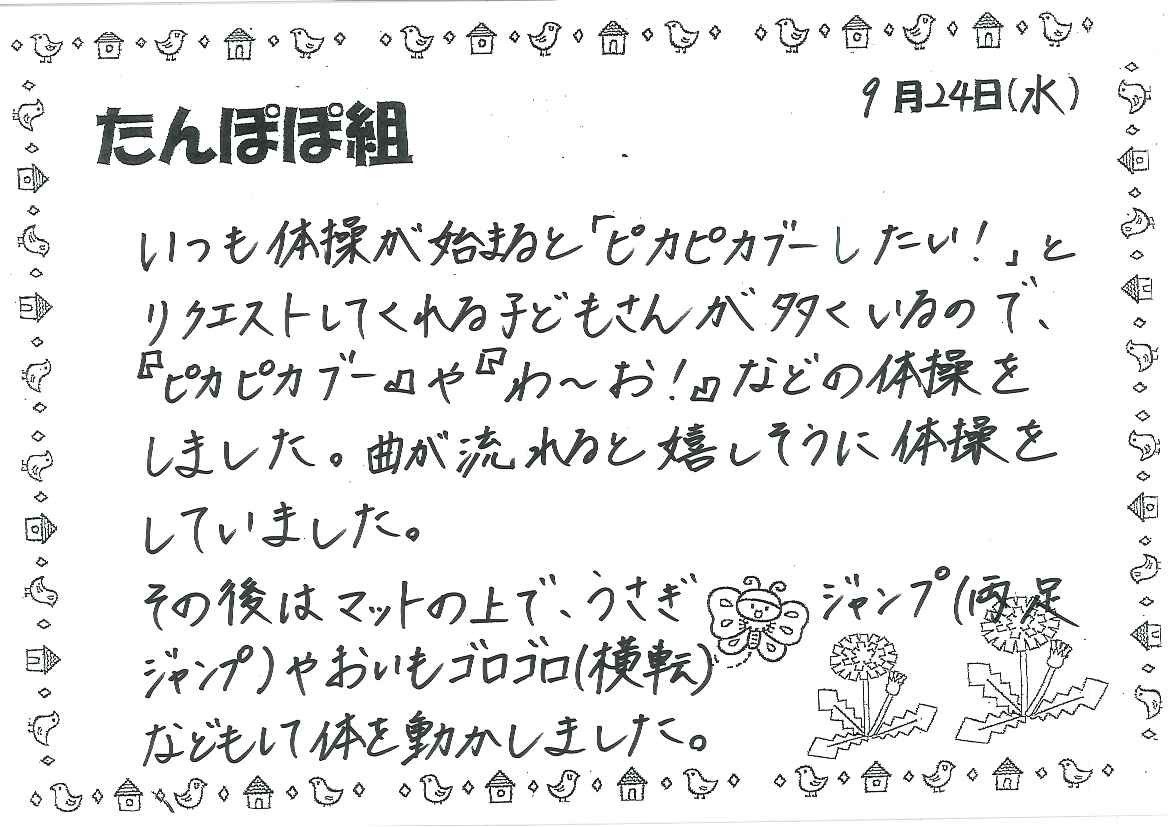 9月24日(水)
たんぽぽ組
いつも体操が始まると「ピカピカブーしたい!」と
リクエストしてくれる子どもさんが多くいるので、
『ピカピカブー』や『わ〜お!』などの体操を
しました。曲が流れると嬉しそうに体操を
していました。
その後はマットの上で、うさぎジャンプ(両足
ジャンプ)やおいもゴロゴロ(横転)
などもして体を動かしました。